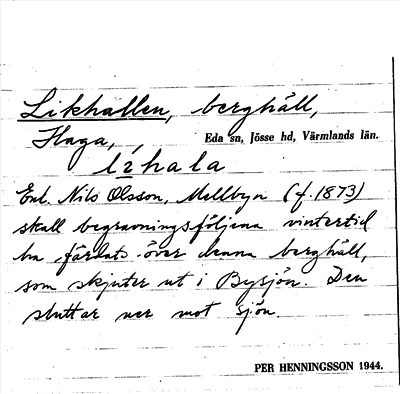 Likhallen, berghäll,
Haga, Eda sn, Jösse hd, Värmlands län.
Enl. Nils Olsson, Mellbyn (f. 1873)
skall begravningsföljena vintertid
ha färdats över denna berghäll,
som skjuter ut i Bysjön. Den
sluttar ner mot sjön.
PER HENNINGSSON 1944.